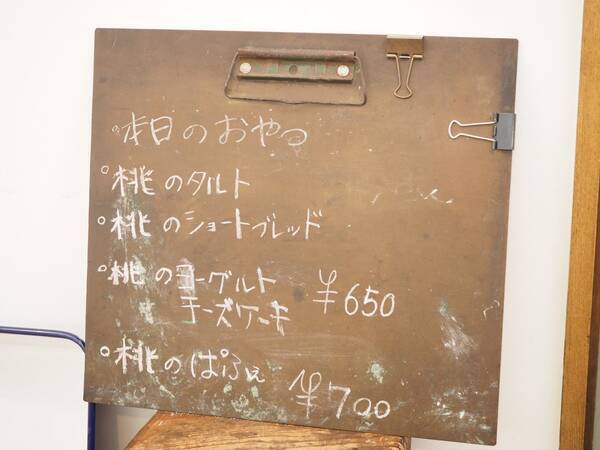 。本日のおやつ
。桃のタルト
。桃のショートブレッド
。桃のヨーグルト
チーズケーキ ¥650
。桃のぱふぇ
¥700